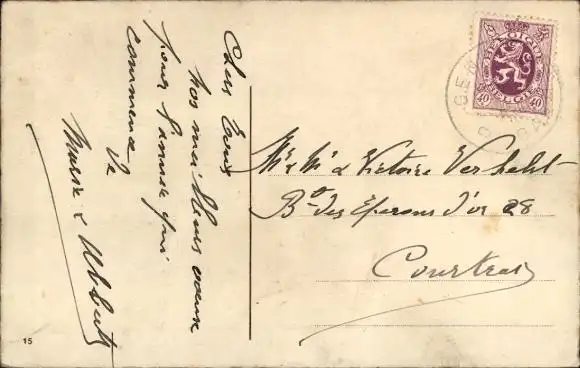 Chers Tous
Nos meilleurs voeux
pour l'année qui
commence
Marie &
BELGIQUE
BELGIE
40 40
GE
GA
Mr & Me & Victoire Verhelst
Bd des Eperons d'or 28
Courtrai
15